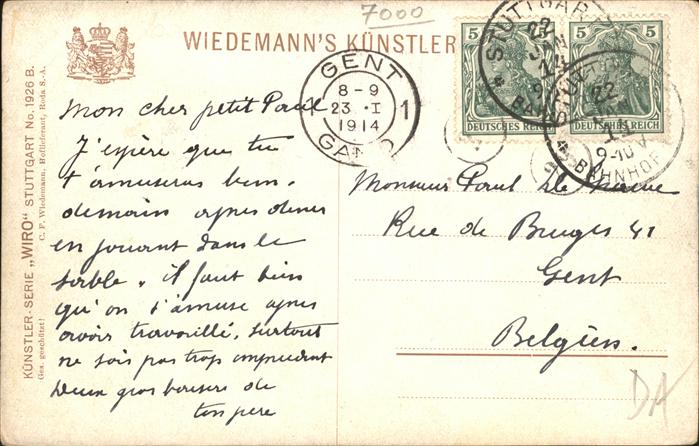 7000
WIEDEMANN'S KÜNSTLER
KÜNSTLER-SERIE „WIRO" STUTTGART No. 1926 B.
Ges. geschützt! C. F. Wiedemann, Hoflieferant, Roda S.-A.
GENT
8-9
23 I
1914
1 1
GAND
STUTTGART
22
JAN
14
BAHNHOF
5 5
DEUTSCHES REICH
5 5
REICH
22
9-10 V
BAHNHOF
Mon cher petit Paul
J'espère que tu
t'amuseras bien.
demain apres diner
en jouant dans le
sable. il faut bien
qu'on s'amuse apres
avoir travaillé, surtout
ne sois pas trop imprudent
Deux gros baisers de
ton pere
Monsieur Paul
Rue de Bruges 41
Gent
Belgien.
DA